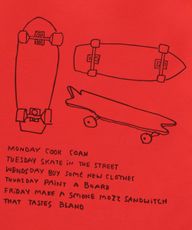 MONDAY COOK COAH
TUESDAY SKATE IN THE STREET
WENDSDAY BUY SOME NEW CLOTHES
THURSDAY PAINT A BOARD
FRIDAY MAKE A SMOKE MOZZ SANDWITCH
THAT TASTES BLAND